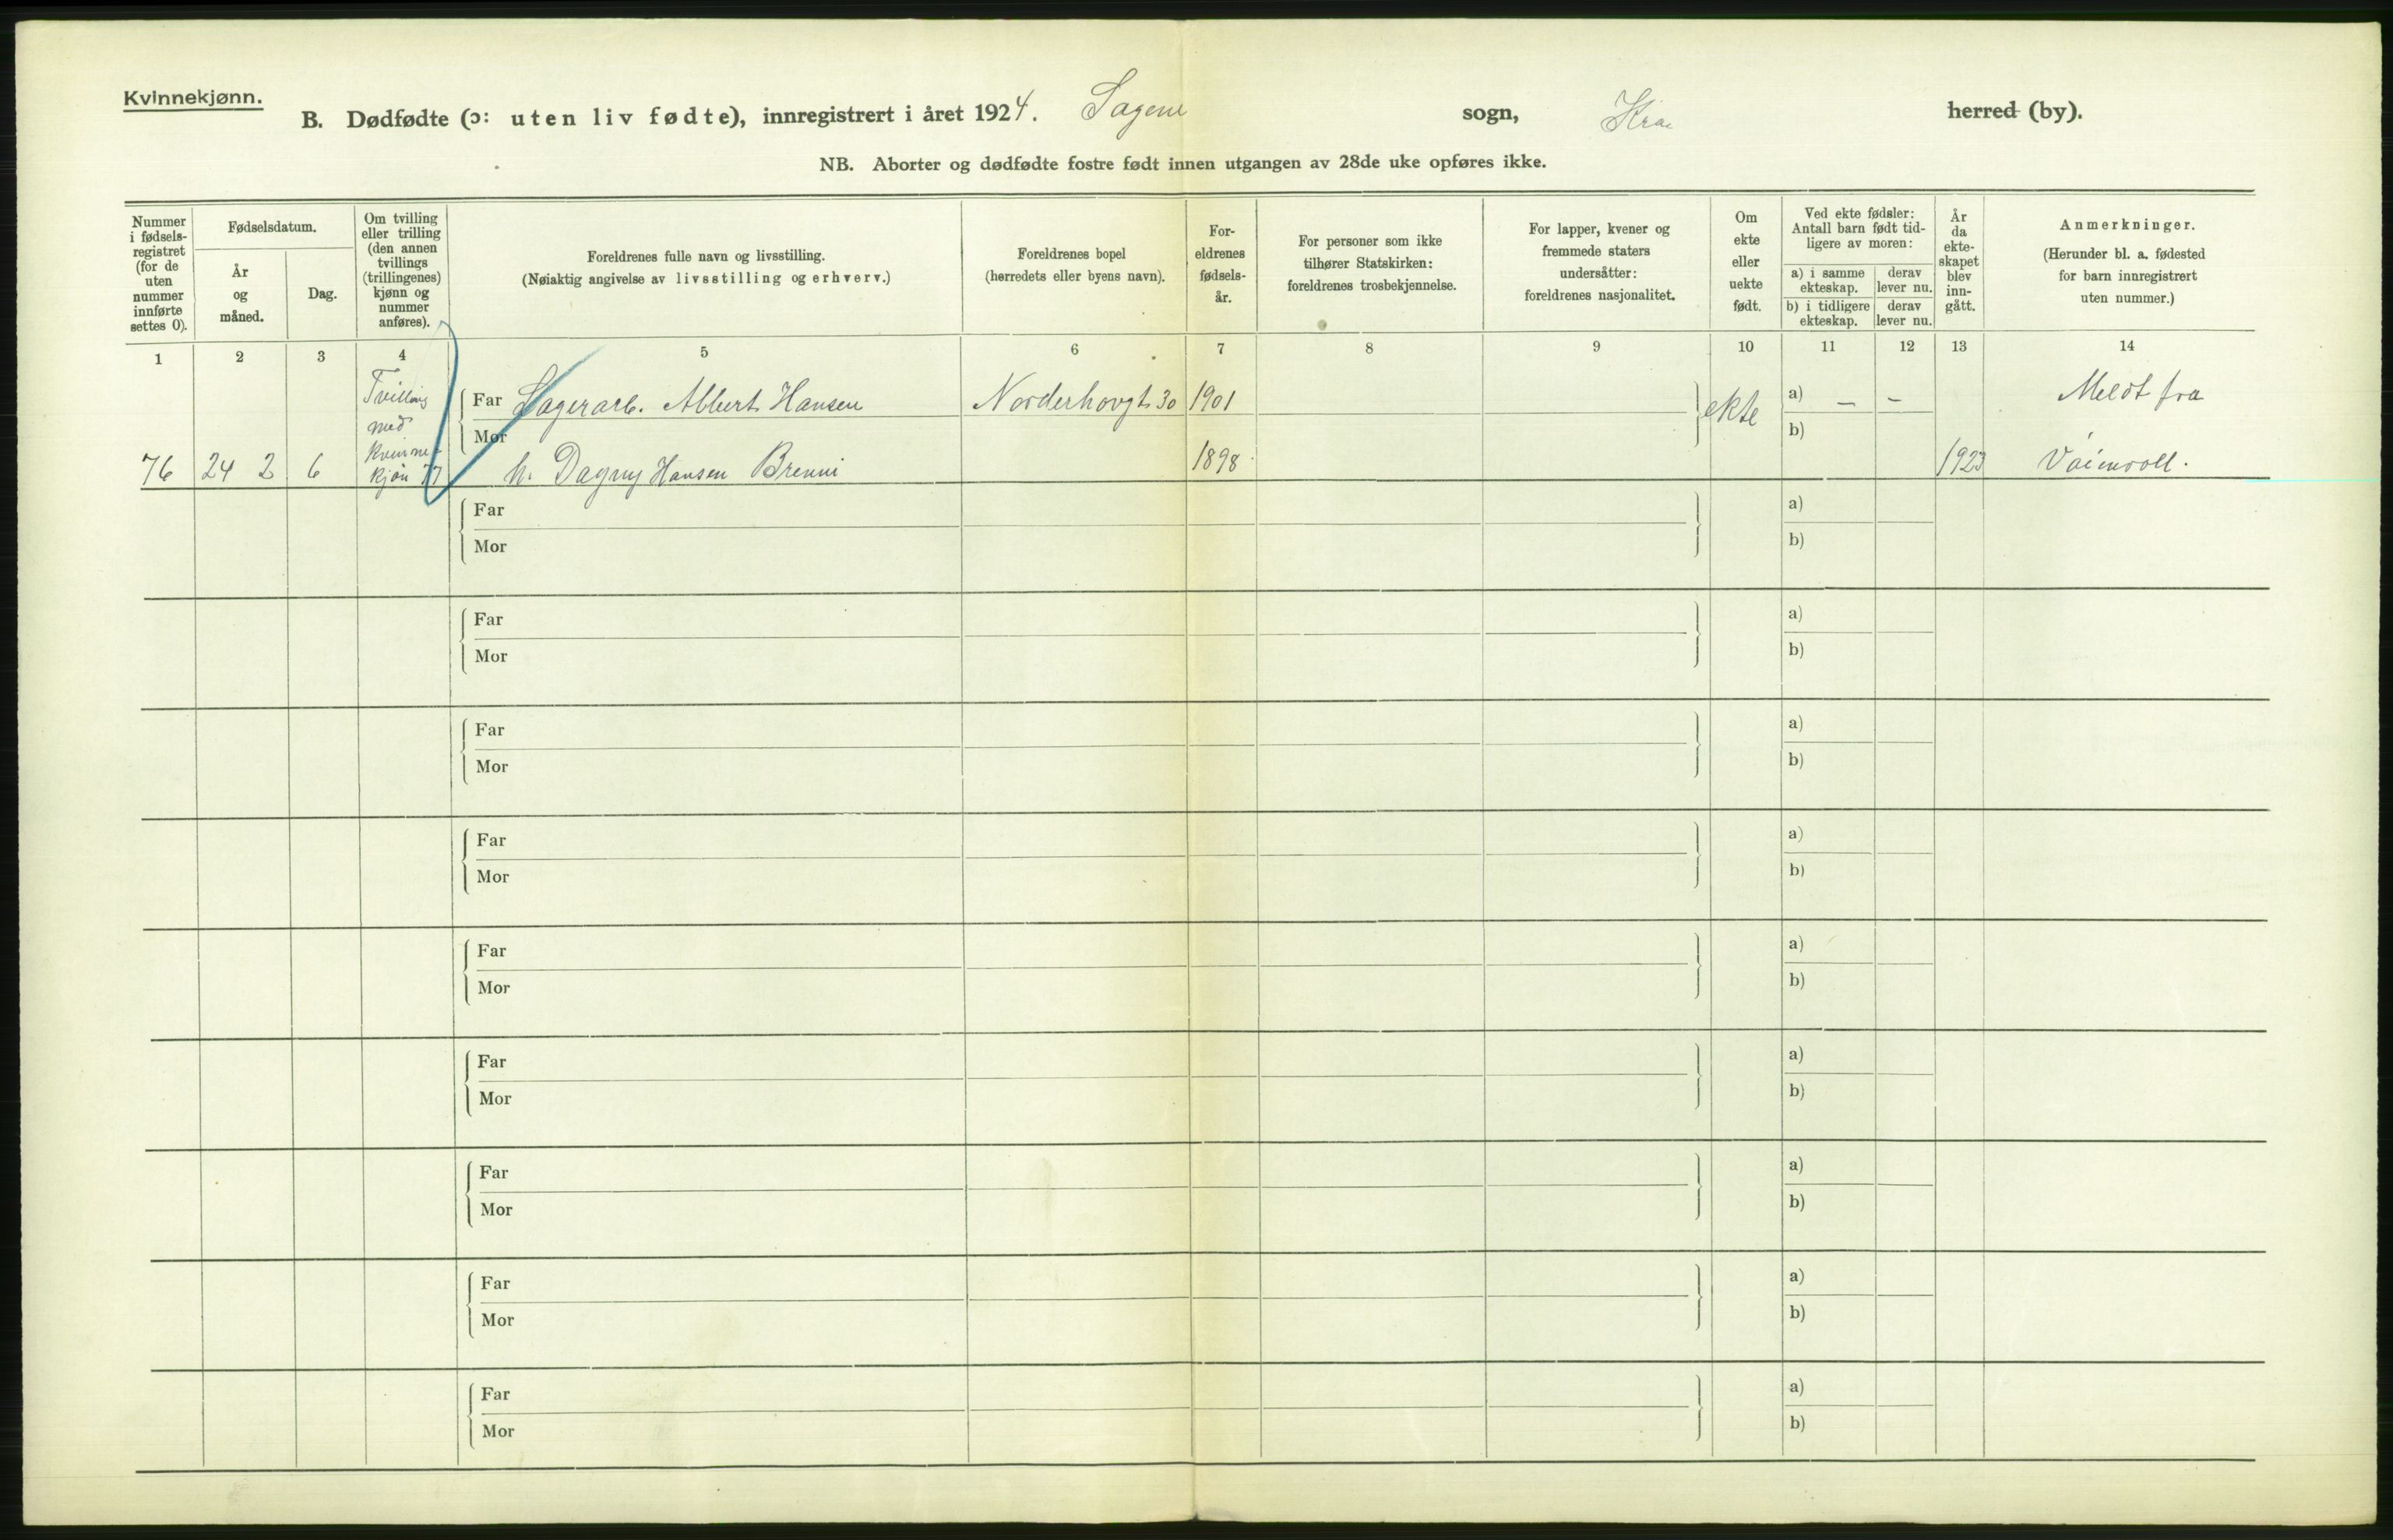 Kvinnekjønn.
B. Dødfødte (ɔ: uten liv fødte), innregistrert i året 1924. Sagene sogn, Kra. herred (by).
NB. Aborter og dødfødte fostre født innen utgangen av 28de uke opføres ikke.
Nummer
i fødsels-
registret
(for de
uten
nummer
innførte
settes 0).
Fødselsdatum.
År
og
måned.
Dag.
Om tvilling
eller trilling
(den annen
tvillings
(trillingenes)
kjønn og
nummer
anføres).
Foreldrenes fulle navn og livsstilling.
(Nøiaktig angivelse av livsstilling og erhverv.)
Foreldrenes bopel
(herredets eller byens navn).
For-
eldrenes
fødsels-
år.
For personer som ikke
tilhører Statskirken:
foreldrenes trosbekjennelse.
For lapper, kvener og
fremmede staters
undersåtter:
foreldrenes nasjonalitet.
Om
ekte
eller
uekte
født.
Ved ekte fødsler:
Antall barn født tid-
ligere av moren:
a) i samme
ekteskap.
derav
lever nu.
b) i tidligere
ekteskap.
derav
lever nu.
År
da
ekte-
skapet
blev
inn-
gått.
Anmerkninger.
(Herunder bl. a. fødested
for barn innregistrert
uten nummer.)
1 2 3 4 5 6 7 8 9 10 11 12 13 14
Tvilling
med
Kvinne-
kjøn 77
76 24 2 6
Far Lagerarb. Albert Hansen Norderhovgt 30 1901 ekte a) — – Meldt fra
Mor b)
h. Dagny Hansen Brenni 1898 1923 Vaienvoll.
Far a)
Mor b)
Far a)
Mor b)
Far a)
Mor b)
Far a)
Mor b)
Far a)
Mor b)
Far a)
Mor b)
Far a)
Mor b)
Far a)
Mor b)
Far a)
Mor b)